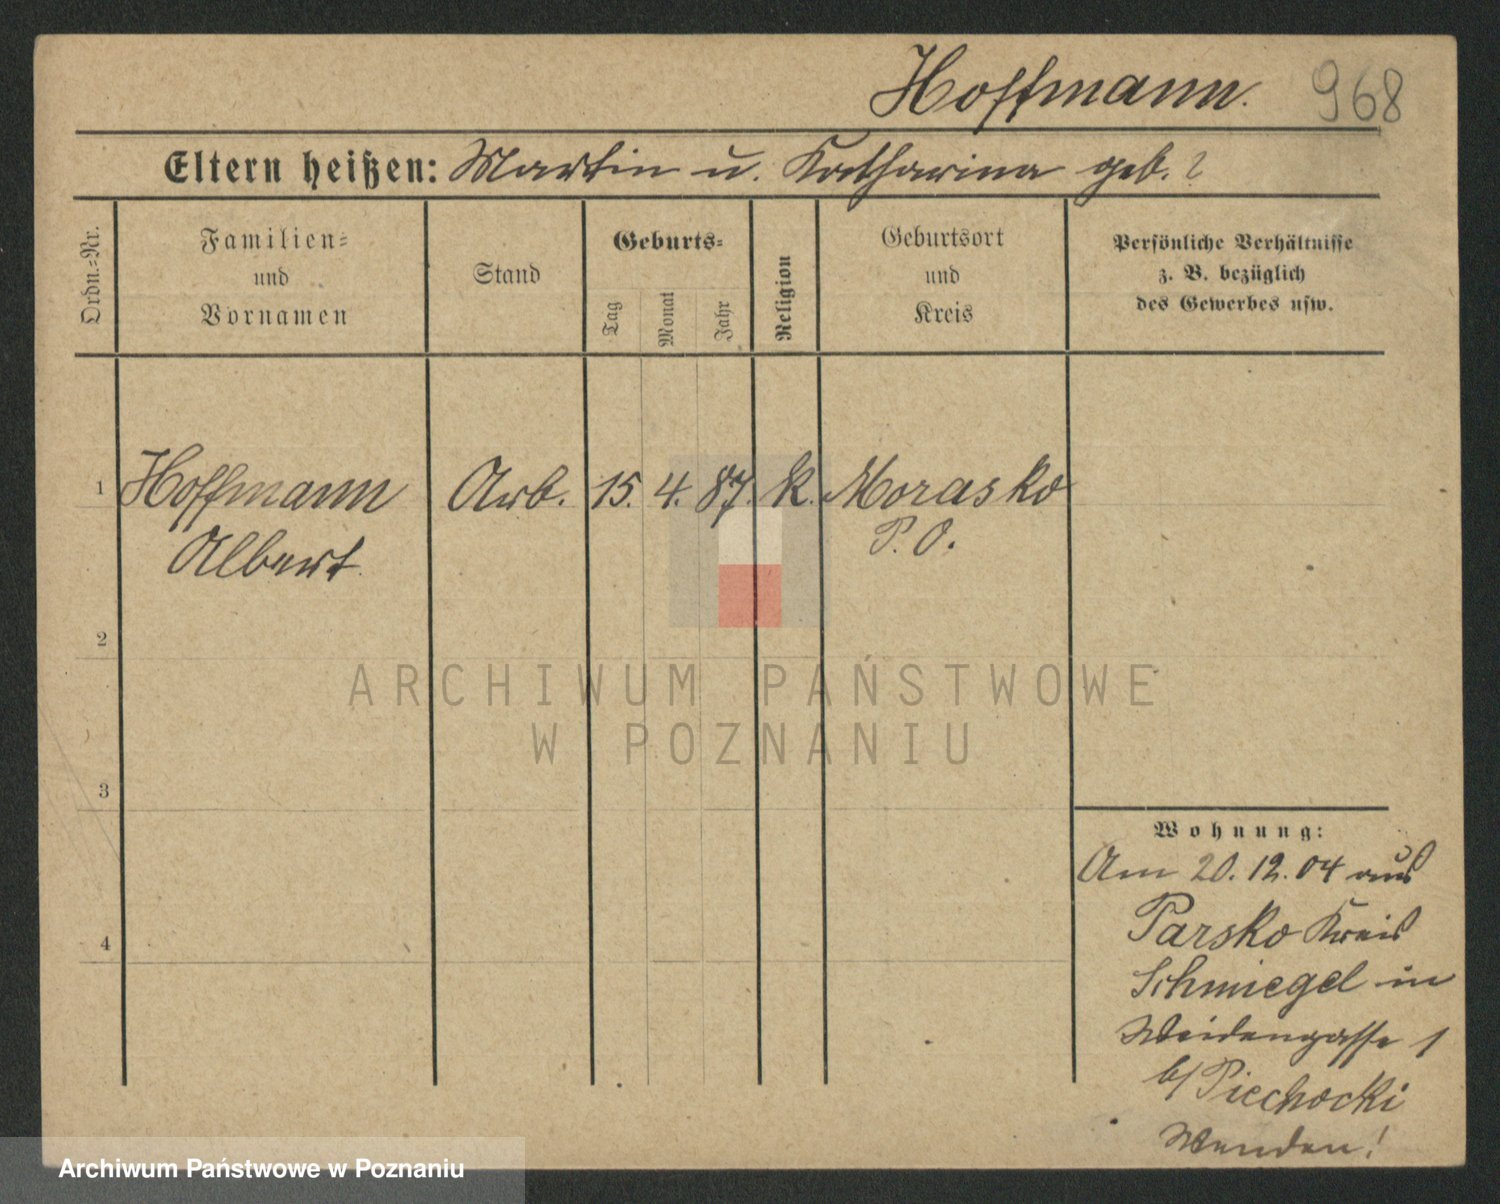 Hoffmann. 968
Eltern heißen: Martin u. Katharina geb. ?
Ordn.=Nr.
Familien=
und
Vornamen
Stand
Geburts=
Tag
Monat
Jahr
Religion
Geburtsort
und
Kreis
Persönliche Verhältnisse
z. B. bezüglich
des Gewerbes usw.
1 Hoffmann Arb. 15. 4. 87. k. Morasko
Albert P. O.
2
3
4
ARCHIWUM PAŃSTWOWE
W POZNANIU
Wohnung:
Am 20. 12. 04 aus
Parsko Kreis
Schmiegel in
Weidengasse 1
b/Piechocki
Wenden!
Archiwum Państwowe w Poznaniu